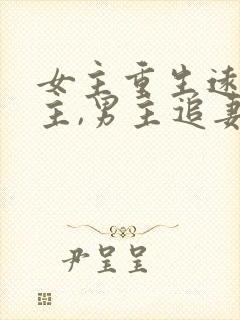 女主重生远
主,男主追妻
尹呈呈